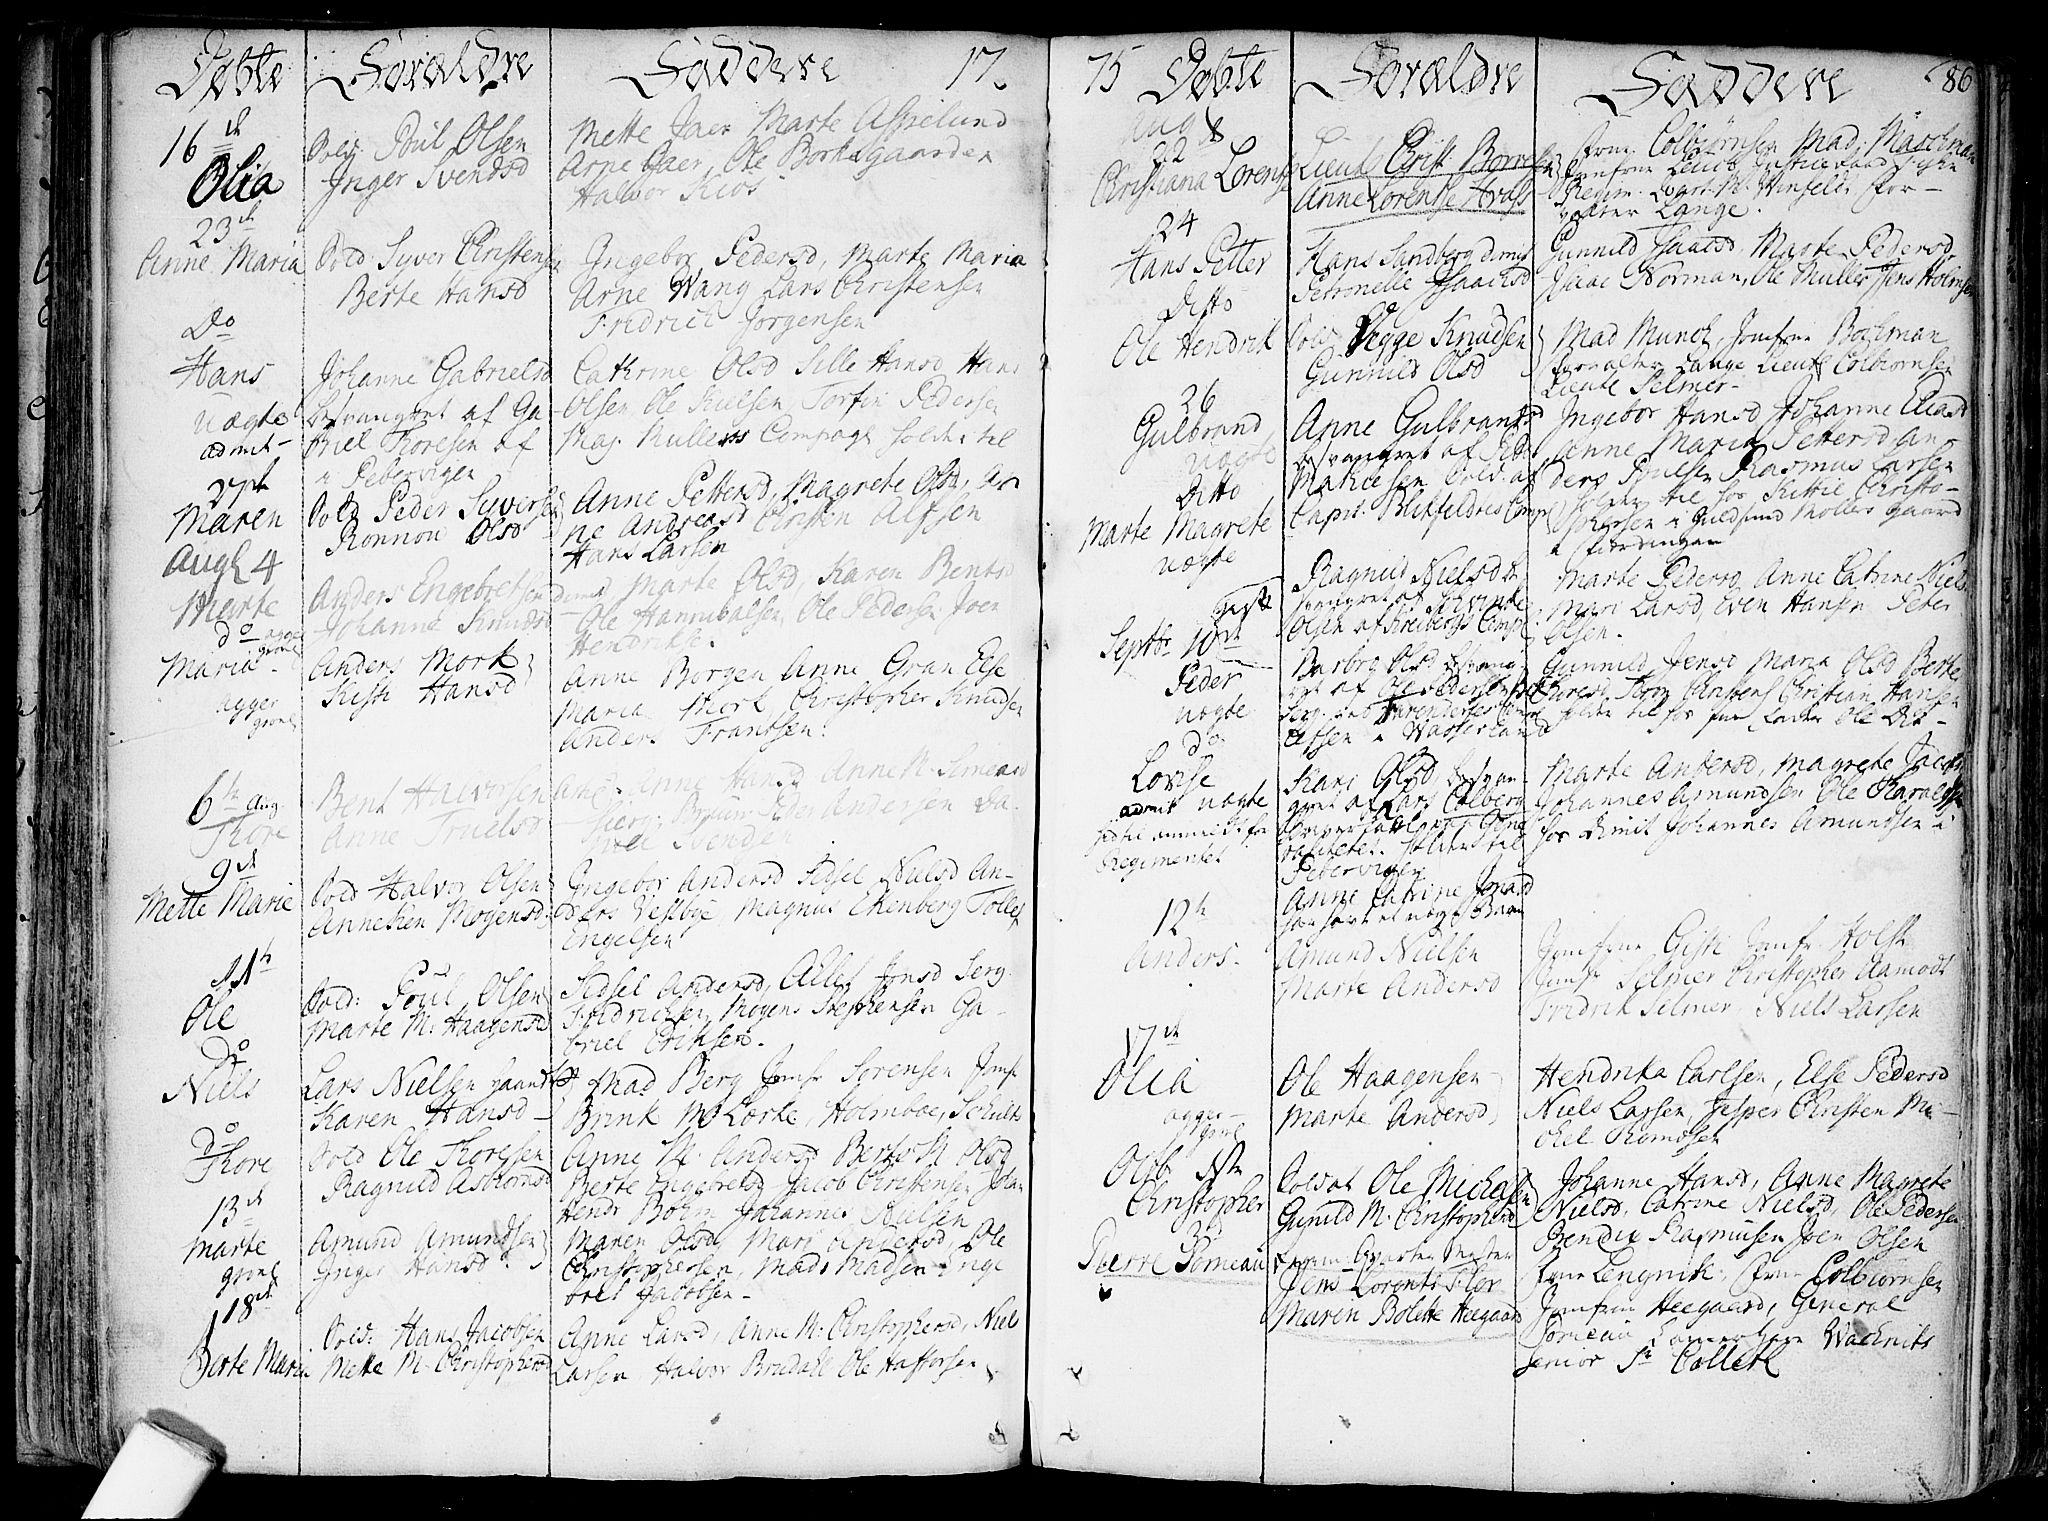 Døbte Forældre Faddere 17
16de
Olia
Sold: Poul Olsen
Inger Svendsd
Mette Jaer Marte Aspelund
Arne Gaer, Ole Borksgaarden
Halvor Kios
23de
Anne Maria
Sold: Syver Christensen
Berte Hansd
Ingebor Pedersd, Marte Maria
Arne Wang Lars Christensen
Fridrich Jorgensen
Do
Hans
uægte
admit
Johanne Gabrielsd
besvangret af Ga-
briel Thoresen af
i Pebervigen
Cathrine Olsd Sille Hansd Hans
Olsen, Ole Nielsen, Torfin Pedersen
Maj. Mullers Compagn holder til
27de
Maren
Sold Peder Syversen
Ronnou Olsd
Anne Pettersd, Magrete Olsd, An
ne Andreasd Christen Alfsen
Hans Larsen
Aug 4
Marte
Anders Engebretsen dimit
Johanne Knudsd
Marte Olsd, Karen Bentsd
Ole Hannibalsen, Ole Pedersen Joen
Hendriks.
do agger
groel
Maria
agger
groel
Anders Mork
Kisti Hansd
Anne Borgen Anne Gran Else
Maria Mork, Christopher Knudsen
Anders Frantsen:
6te Aug.
Thore
Bent Halvorsen
Anne Truelsd
Anne Hansd Anne M. Simensd
Bruun Andersen Da-
niel Svendsen
9de
Mette Marie
Sold Halvor Olsen
Anneken Mogensd
Ingebor Andersd Sidsel Nielsd An-
ders Vestbye, Magnus Ekenberg Tolles
Engelsen
11te
Ole
Sold: Poul Olsen
Marte M: Haagensd
Sidsel Andersd, Allet Jonsd Serg.
Fridrichsen, Mogens Stephensen Ga-
briel Eriksen.
Do
Niels
Lars Nielsen
Karen Hansd
Mad Berg Jomfr Sorensen Jomfr
Brink Mr Lorke, Holmboe, Schults
Do
Thore
Sold Ole Thoresen
Ragnild Asbiornsd
Anne M. Andersd Berte M. Olsd
Berte Engebretsd Jacob Christensen Johan
Hendr Bohm Johannes Nielsen
13de
Marte
groel
Amund Amundsen
Inger Hansd
Maren Olsd, Mari Andersd, Ole
Christophersen, Mads Madsen Inge
bret Jacobsen
18de
Berte Marie
Sold: Hans Jacobsen
Mette M. Christophersd
Anne Larsd, Anne M: Christophersd, Niels
Larsen Halvor Brudahl Ole Hafforsen
75 Døbte Forældre Faddere 86
Aug
22
Christiana Lorense
Lieut Christ Borresen
Anne Lorentse Hrass
Frue Colbiørnsen Mad. Maschman
Jomfrue Justiceraad
Regim. Winfelt For-
valter Lange.
24
Hans Petter
Hans Sandberg dimit
Petronelle Isaachsd
Gunnild Isaacsd Marte Pedersd
Isaac Norman, Ole Muller, Jens Holmsen
Ditto
Ole Hendrik
Sold Vegge Knudsen
Gunnild Olsd
Mad Munch, Jomfrue Bochman
Forvalter Lange Lieut Colbiornsen
Lieut Selmer
26
Gulbrand
uægte
Anne Gulbrandsd
besvangret af Peder
Mathiesen Sold. af
Capit. Blikfeldtes Comp
Ingebor Hansd Johanne Eliasd
Anne Maria Pettersd An-
ders Poulsen Rasmus Larsen
holder til hos Kittil Christo-
phersen i Guldsmed Mollers gaard
i Fierdingen
Ditto
Marte Magrete
uægte
Ragnild Nielsd be
svangret af Syvende
Olsen af Kreibergs Comp
Marte Pedersd, Anne Catrine Niels
Mari Larsd, Even Hansen Peter
Olsen.
Septbr. 10de
Peder
uægte
Barbro Olsd besvang-
ret af Ole Pedersen
Gunnild Jensd Maria Olsd Berte
Christian Hansen
holder til hos Ole Dit-
lefsen i Watterland
do
Lovise
admit uægte
Regimentet
Kari Olsd besvan
gret af Lars Colberg
holder til
Pebervigen
Marte Andersd, Magrete Jacobs
Johannes Amundsen Ole Haraldsen
hos dimit Johannes Amundsen i
Anne Catrine Jonsd
har havt et uægte Barn
12te
Anders.
Amund Nielsen
Marte Andersd
Jomfrue Gisti Jomfr. Holst
Jomfr Selmer Christopher Aamodt
Fridrik Selmer, Niels Larsen
17de
Olia
agger
groel
Ole Haagensen
Marte Andersd
Hendrika Carlsen, Else Pedersd
Niels Larsen, Jesper Christen Mi-
chel Thomassen
Octb 1ste
Christopher
Soldat Ole Michelsen
Gunild M. Christophersd
Johanne Hansd, Anne Magrete
Nielsd, Catrine Nielsd, Ole Pedersen
Bendix Rasmusen Joen Olsen
3
Pierre Someau
Qvarter Mester
Jens Lorents Flor
Maren Bolette Heegaard
Frue Lengnik, Frue Colbiornsen
Jomfrue Heegaard, General
Someau Wacknits
senior Sr Collett